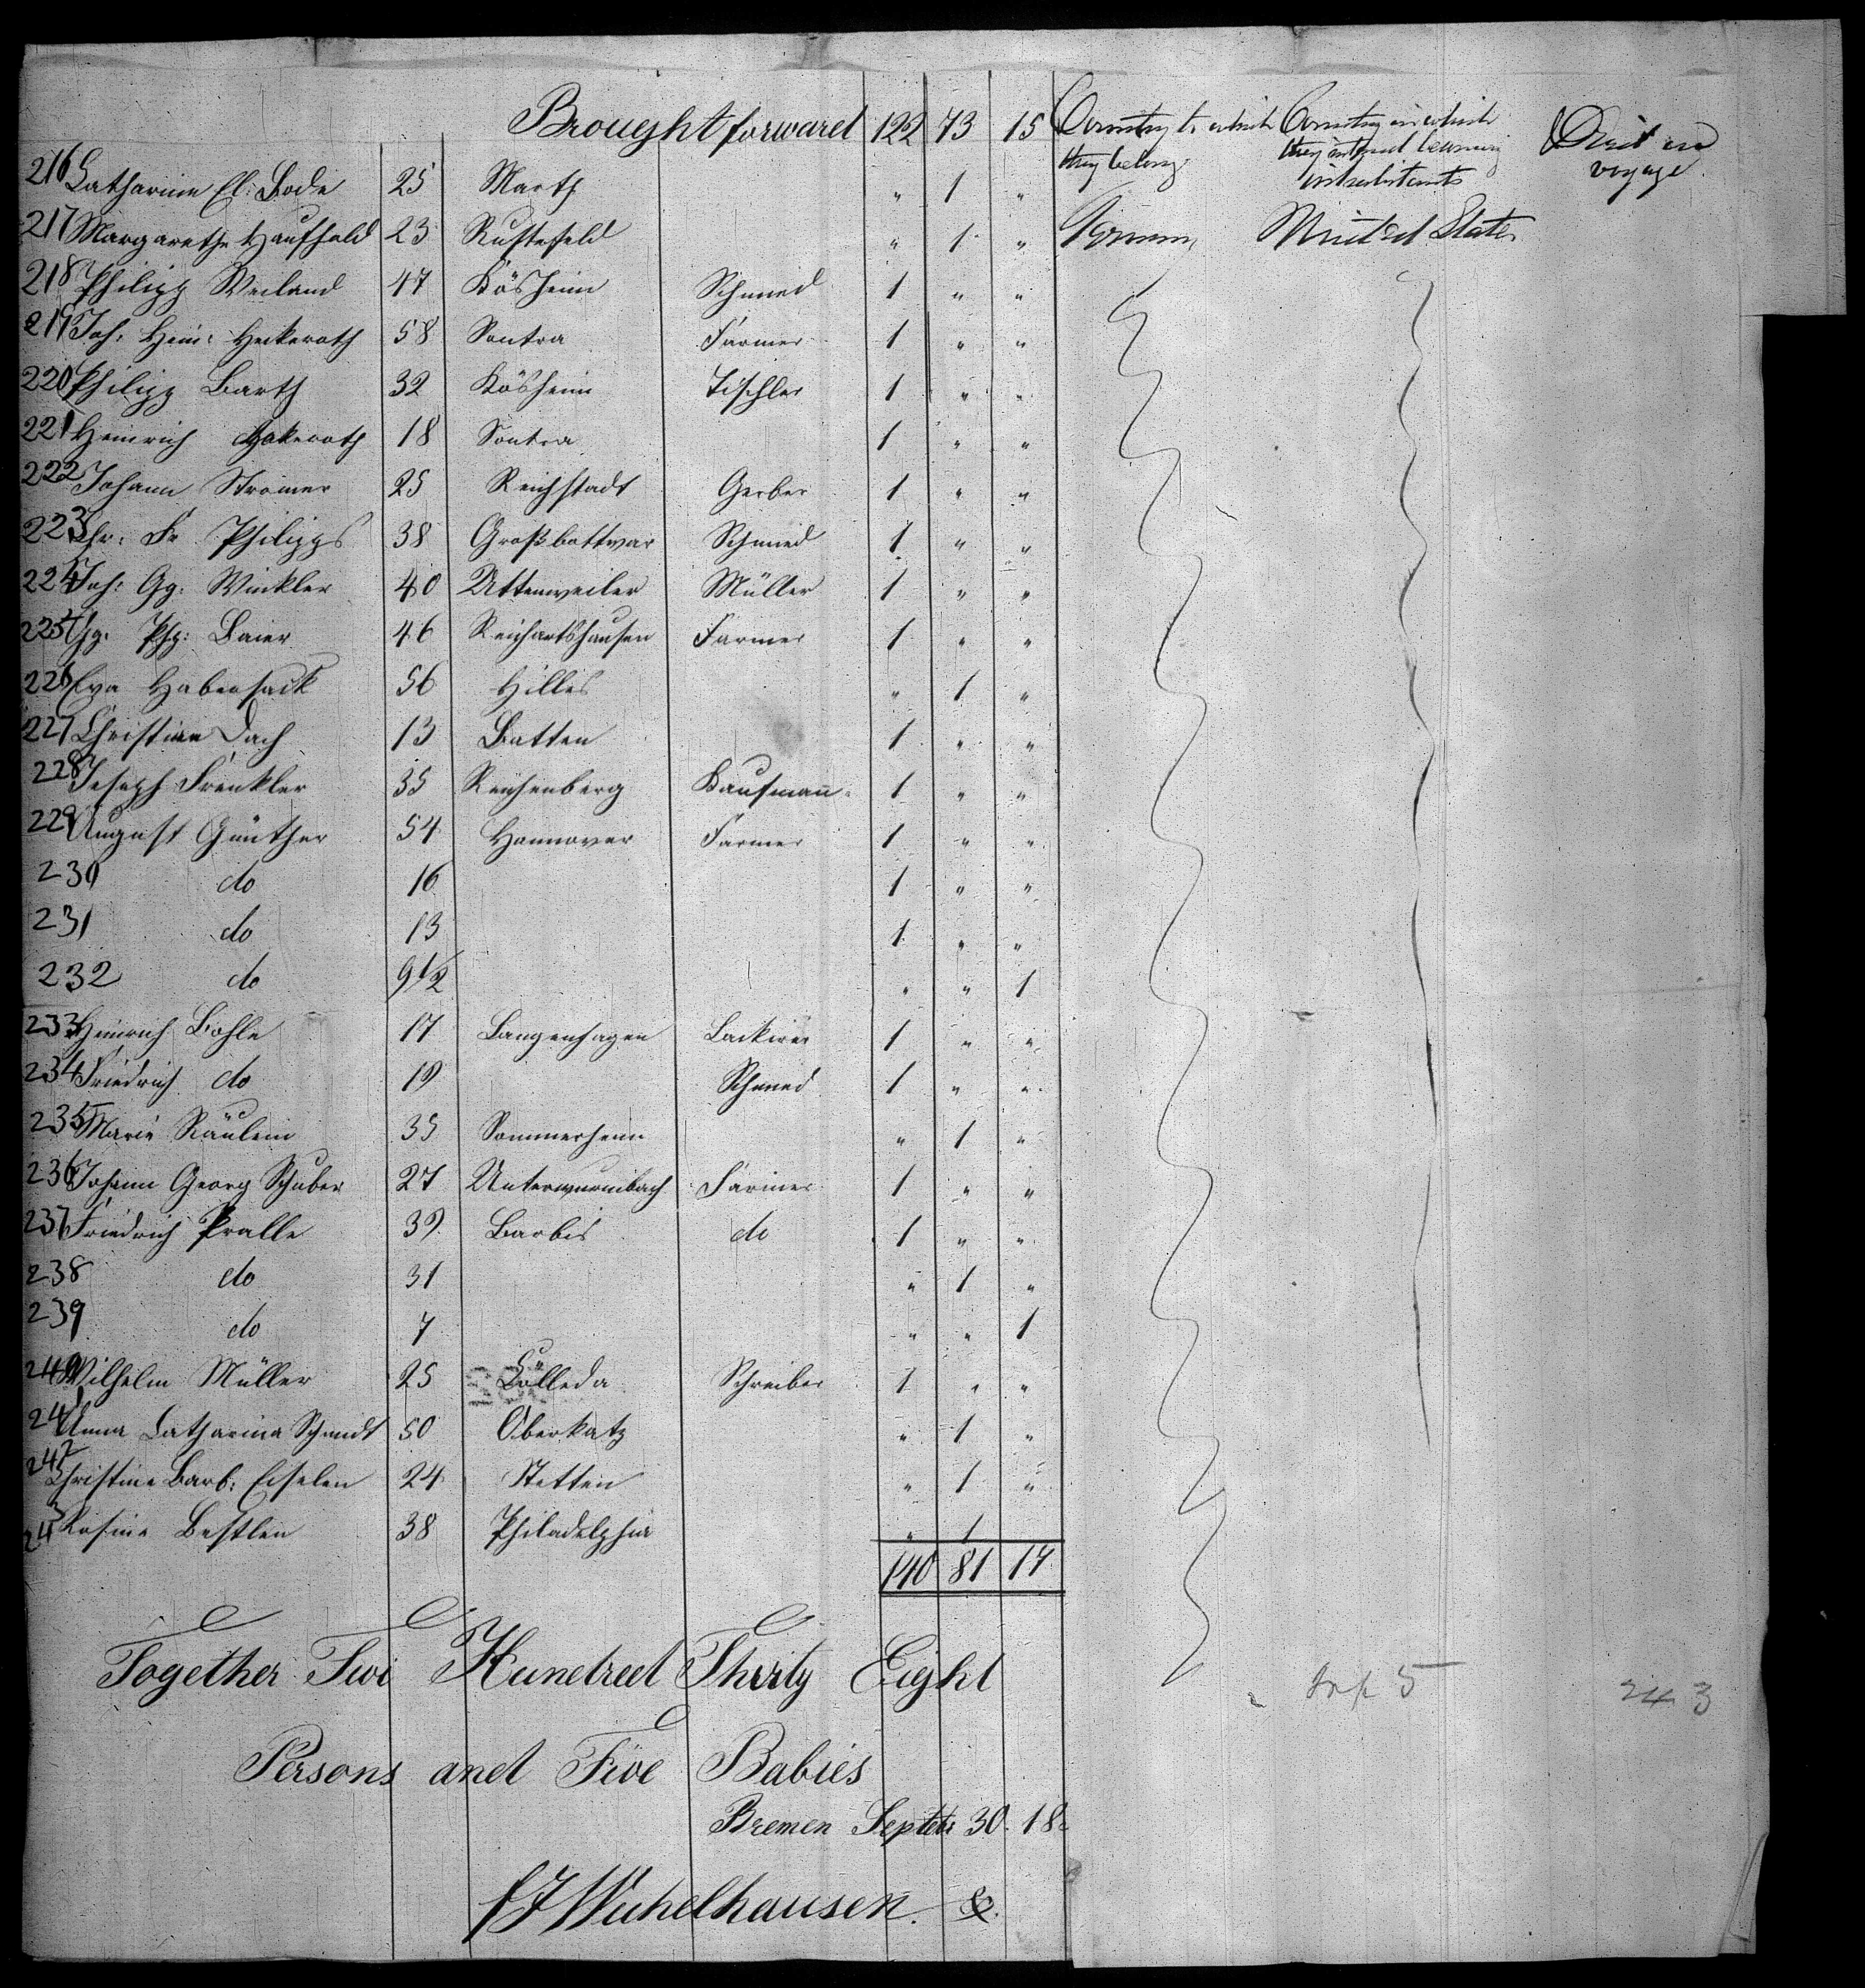 Brought forward 122 73 15 Country to which they belong. Country in which they intend becoming inhabitants Died on voyage
216 Catharine El: Bode 25 Marth " 1 "
217 Margarethe Kauffold 23 Rustefeld " 1 " Germany United States
218 Philipp Weiland 47 Kösheim Schmied 1 " "
219 Joh: Hein: Heckeroth 58 Sontra Farmer 1 " "
220 Philipp Barth 32 Kösheim Tischler 1 " "
221 Heinrich Hekeroth 18 Sontra 1 " "
222 Johann Stromer 25 Reichstadt Gerber 1 " "
223 Chr: Fr Philipps 38 Großbottwar Schmied 1 " "
224 Joh: Gg: Winkler 40 Uttenweiler Müller 1 " "
225 Gg: Php: Baier 46 Reichartshausen Farmer 1 " "
226 Eva Habersack 56 Hilles " 1 "
227 Christian Dach 13 Batten 1 " "
228 Joseph Frenkler 35 Reichenberg Kaufmann 1 " "
229 August Günther 54 Hannover Farmer 1 " "
230 do 16 1 " "
231 do 13 1 " "
232 do 9 1/2 " " 1
233 Heinrich Bohle 17 Langenhagen Lackirer 1 " "
234 Friedrich do 19 Schmied 1 " "
235 Marie Räulein 35 Sommerheim " 1 "
236 Johann Georg Schuber 27 Unterwurmbach Farmer 1 " "
237 Friedrich Pralle 39 Barbis do 1 " "
238 do 31 " 1 "
239 do 7 " " 1
240 Wilhelm Müller 25 Cölleda Schreiber 1 " "
241 Anna Catharina Schmidt 50 Oberkatz " 1 "
242 Christine Barb: Eiselen 24 Stetten " 1 "
243 Rosine Bestlen 38 Philadelphia " 1
140 81 17
Together Two Hundred Thirty Eight
Inf 5 243
Persons and Five Babies
Bremen Septebr 30. 18
Wichelhausen &